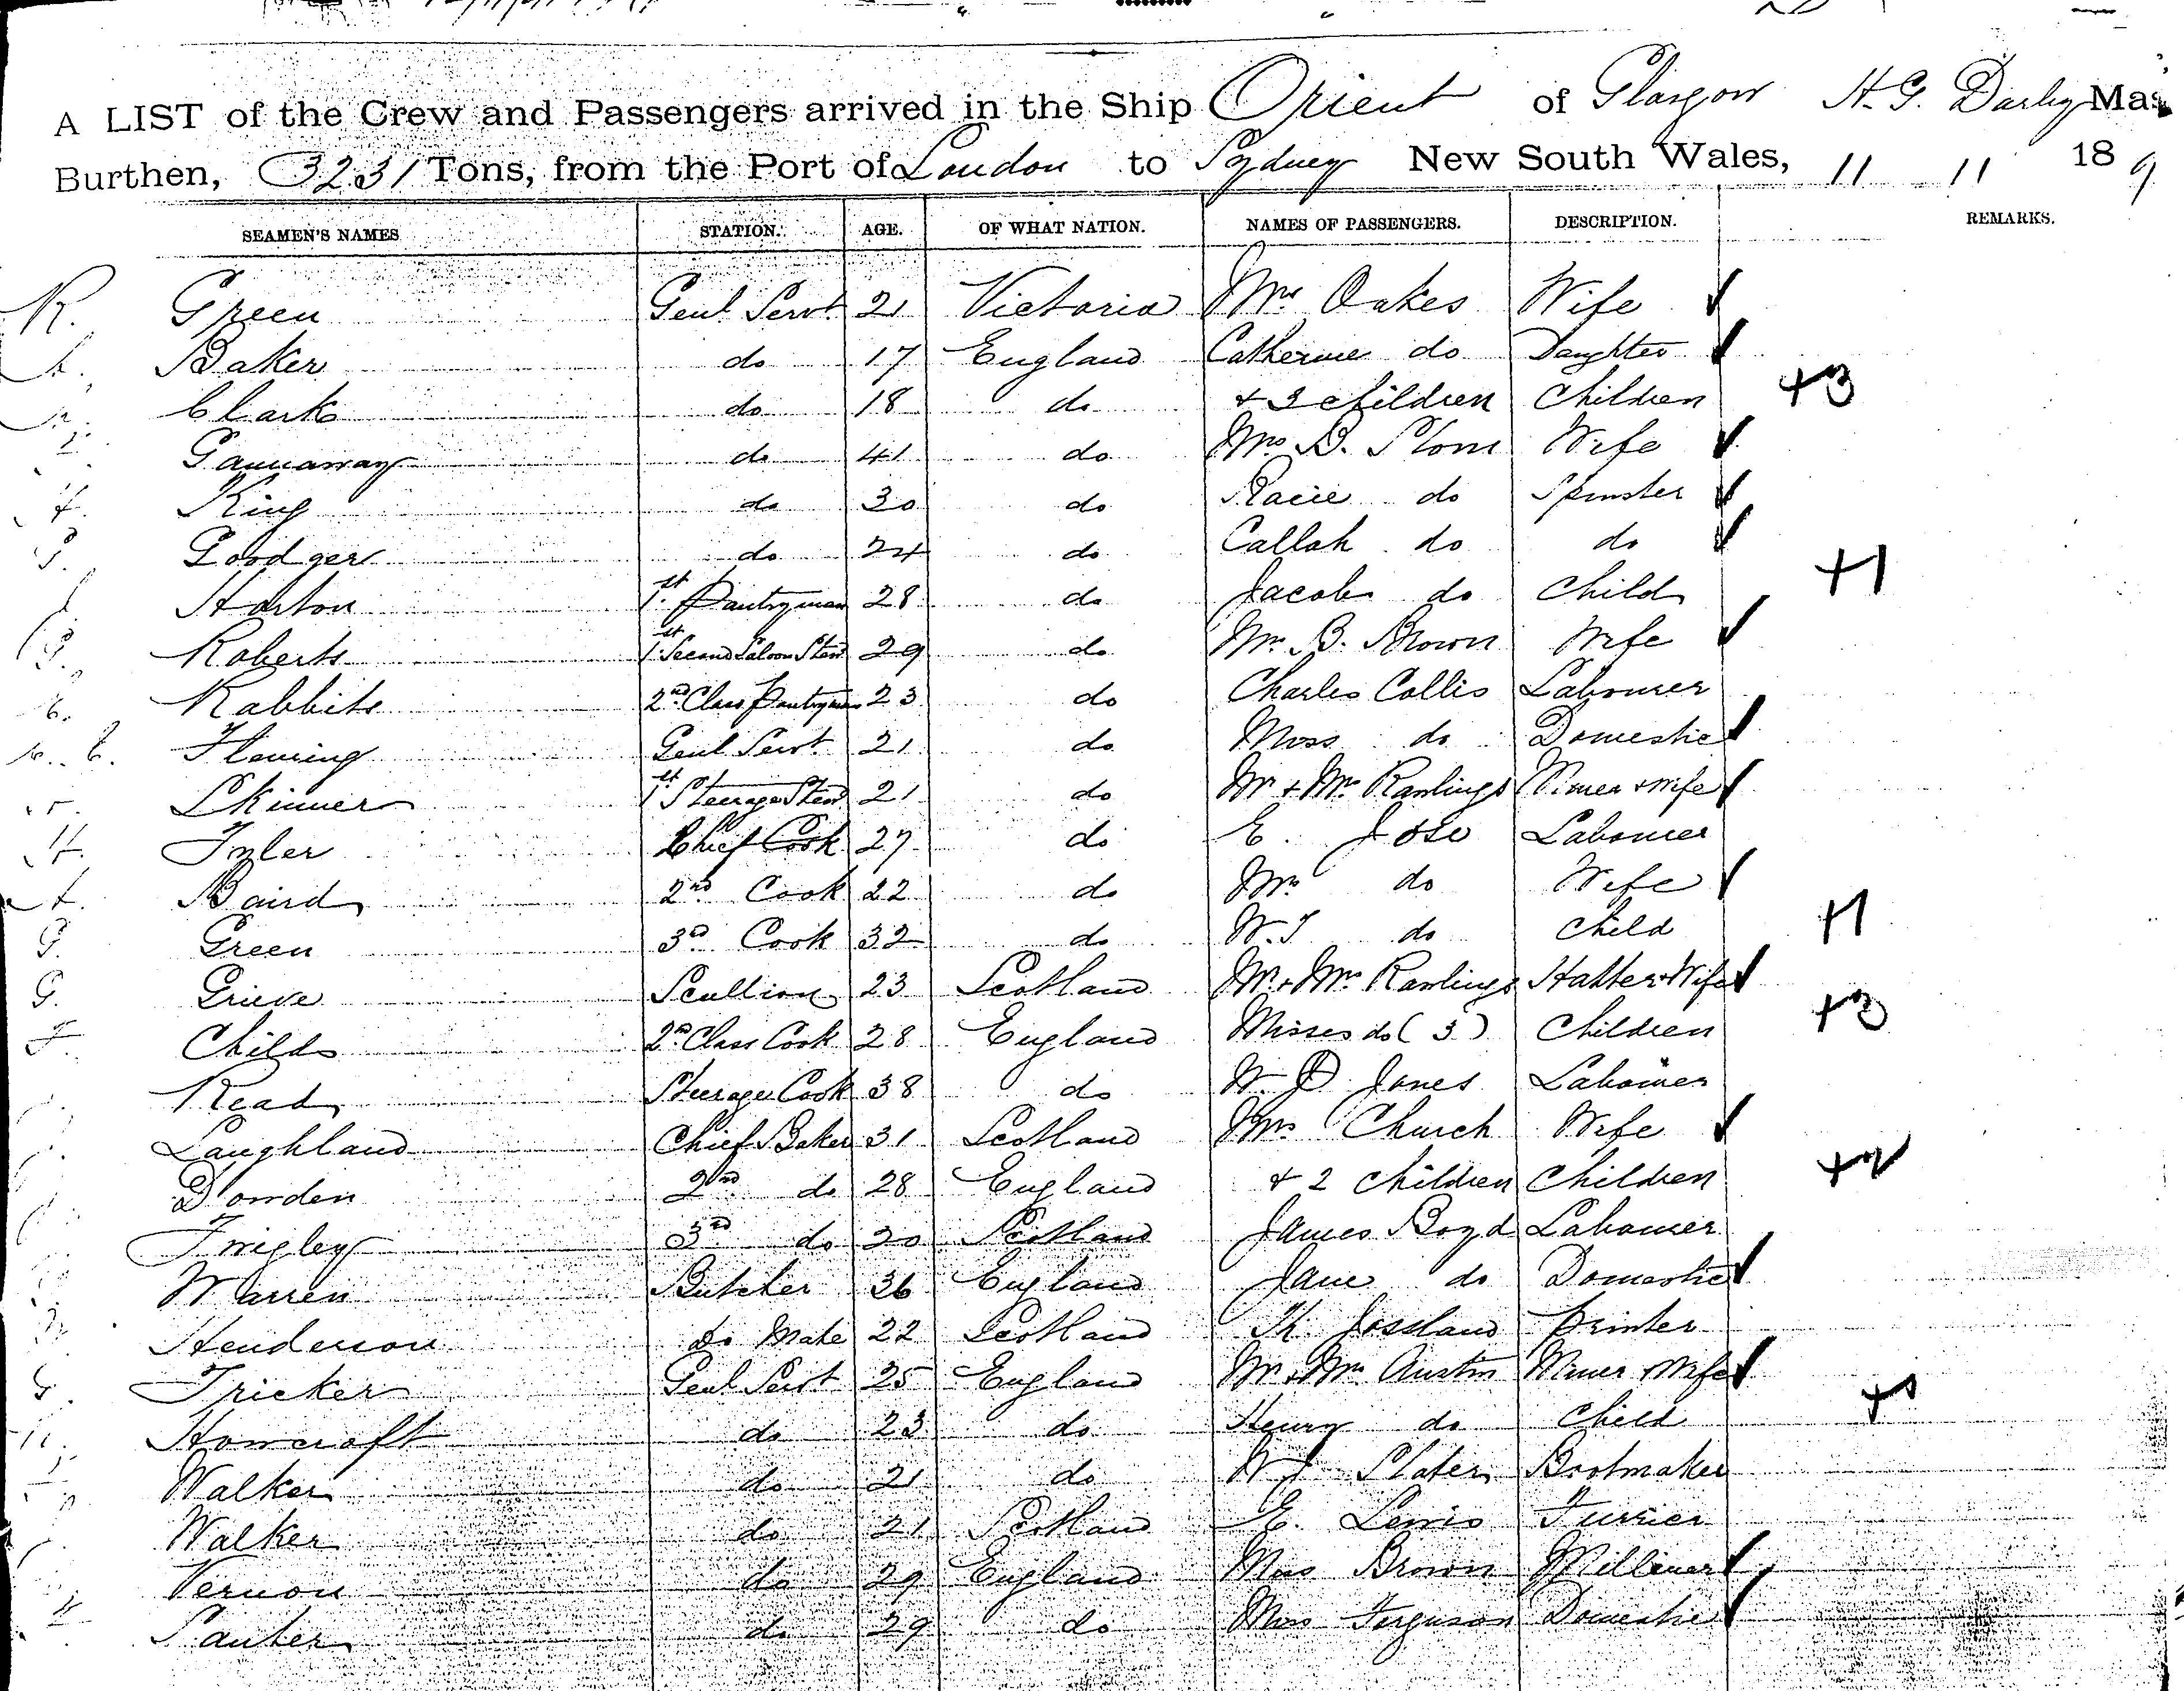 A LIST of the Crew and Passengers arrived in the Ship Orient of Glasgow H. G. Darby Mas
Burthen, 3231 Tons, from the Port of London to Sydney New South Wales, 11 11 189
SEAMEN'S NAMES STATION. AGE. OF WHAT NATION. NAMES OF PASSENGERS. DESCRIPTION. REMARKS.
R. Green Genl Servt 21 Victoria Mrs Oakes Wife
Baker do 17 England Catherine do Daughter
Clark do 18 do + 3 children Children +3
Gannaway do 41 do Mrs B. Stone Wife
King do 30 do do Spinster
Goodger do 24 do Callah do do
Horton 1st Pantryman 28 do Jacob do Child +1
Roberts 1st Second Saloon Stewd 29 do B. Brown Wife
Rabbits 2nd Class Pantryman 23 do Charles Collis Labourer
Fleming Genl Servt 21 do Miss do Domestic
Skinner 1st Steerage Stewd 21 do Mr + Mrs Rawlings Miner + Wife
H. Tyler Chief Cook 27 do E. Jose Labourer
Baird 2nd Cook 22 do Mrs do Wife
G. Green 3rd Cook 32 do W. J do Child +1
G. Grieve Scullion 23 Scotland Mr + Mrs Rawlings Hatter + Wife
F. Childs 2nd Class Cook 28 England Misses do (3) Children +3
Read Steerage Cook 38 do W. D Jones Labourer
Laughland Chief Baker 31 Scotland Mrs Church Wife
Dowden 2nd do 28 England + 2 Children Children +2
Twigley 3rd do 20 Scotland James Boyd Labourer
Warren Butcher 36 England Jane do Domestic
Henderson do Mate 22 Scotland Th. Jossland Printer
G. Tricker Genl Servt 25 England Mr + Mrs Austin Miner + Wife
Howcroft do 23 do Henry do Child +1
Walker do 21 do W J Slater Bootmaker
Walker do 21 Scotland E. Lewis Furrier
Vernon do 29 England Miss Brown Milliner
Panter do 29 do Miss Ferguson Domestic